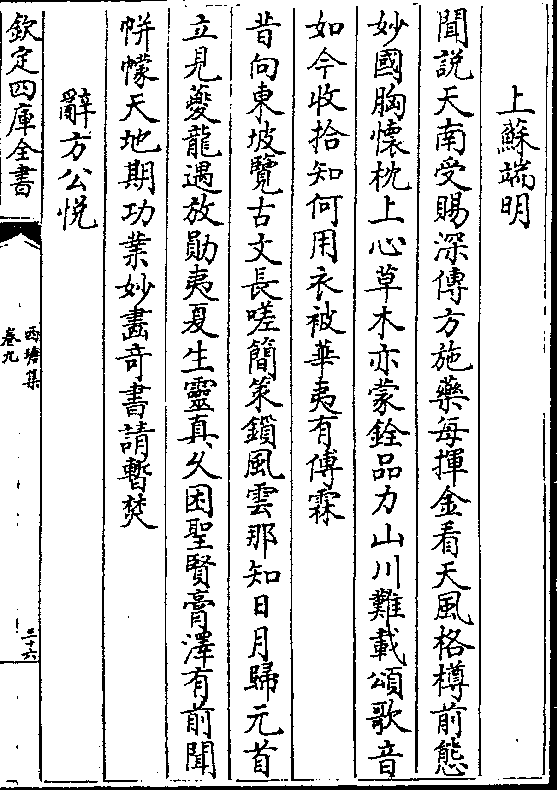 上蘇端明
聞說天南受賜深傳方施藥每揮金看天風格樽前態
妙國胸懷枕上心草木亦蒙銓品力山川難載頌歌音
如今收拾知何用衣被華夷有傅霖
昔向東坡覽古文長嗟簡策鎖風雲那知日月歸元首
立見夔龍遇放勛夷夏生靈真久困聖賢膏澤有前聞
帡幪天地期功業妙畫奇書請暫焚
辭方公悅
欽定四庫全書
西塘集
卷九
三十六